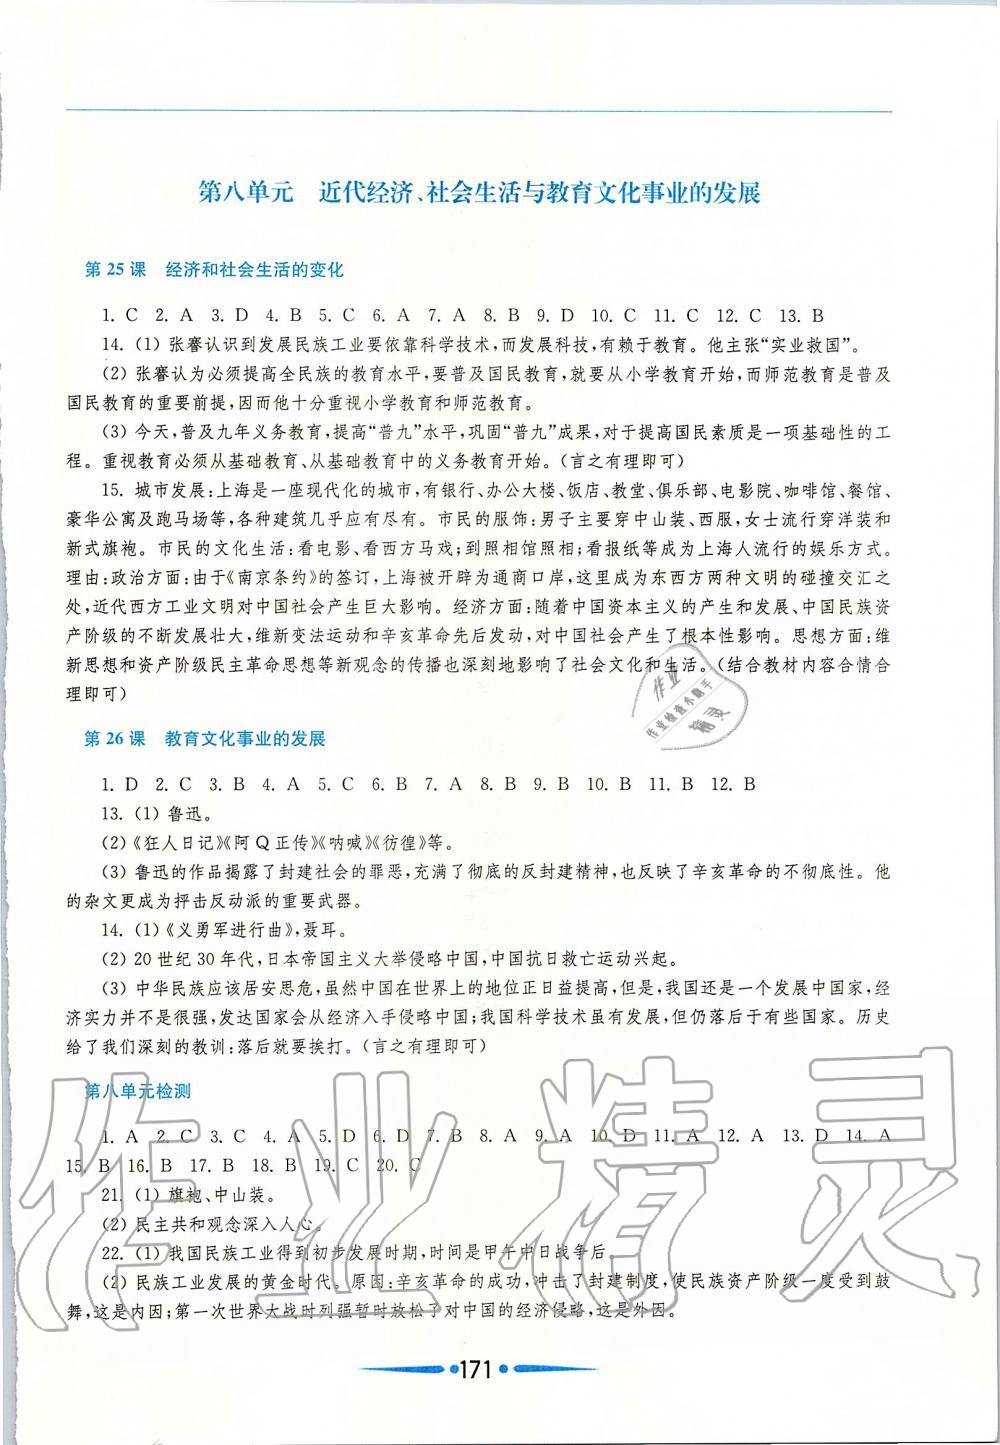 第八单元　近代经济、社会生活与教育文化事业的发展
第 25 课　经济和社会生活的变化
1. C　2. A　3. D　4. B　5. C　6. A　7. A　8. B　9. D　10. C　11. C　12. C　13. B
14.（1）张謇认识到发展民族工业要依靠科学技术，而发展科技，有赖于教育。他主张“实业救国”。
（2）张謇认为必须提高全民族的教育水平，要普及国民教育，就要从小学教育开始，而师范教育是普及
国民教育的重要前提，因而他十分重视小学教育和师范教育。
（3）今天，普及九年义务教育，提高“普九”水平，巩固“普九”成果，对于提高国民素质是一项基础性的工
程。重视教育必须从基础教育、从基础教育中的义务教育开始。（言之有理即可）
15. 城市发展：上海是一座现代化的城市，有银行、办公大楼、饭店、教堂、俱乐部、电影院、咖啡馆、餐馆、
豪华公寓及跑马场等，各种建筑几乎应有尽有。市民的服饰：男子主要穿中山装、西服，女士流行穿洋装和
新式旗袍。市民的文化生活：看电影、看西方马戏；到照相馆照相；看报纸等成为上海人流行的娱乐方式。
理由：政治方面：由于《南京条约》的签订，上海被开辟为通商口岸，这里成为东西方两种文明的碰撞交汇之
处，近代西方工业文明对中国社会产生巨大影响。经济方面：随着中国资本主义的产生和发展、中国民族资
产阶级的不断发展壮大，维新变法运动和辛亥革命先后发动，对中国社会产生了根本性影响。思想方面：维
新思想和资产阶级民主革命思想等新观念的传播也深刻地影响了社会文化和生活。（结合教材内容合情合
理即可）
作业
作业检查小助手
精灵
第 26 课　教育文化事业的发展
1. D　2. C　3. B　4. A　5. C　6. B　7. A　8. B　9. B　10. B　11. B　12. B
13.（1）鲁迅。
（2）《狂人日记》《阿 Q 正传》《呐喊》《彷徨》等。
（3）鲁迅的作品揭露了封建社会的罪恶，充满了彻底的反封建精神，也反映了辛亥革命的不彻底性。他
的杂文更成为抨击反动派的重要武器。
14.（1）《义勇军进行曲》，聂耳。
（2）20 世纪 30 年代，日本帝国主义大举侵略中国，中国抗日救亡运动兴起。
（3）中华民族应该居安思危，虽然中国在世界上的地位正日益提高，但是，我国还是一个发展中国家，经
济实力并不是很强，发达国家会从经济入手侵略中国；我国科学技术虽有发展，但仍落后于有些国家。历史
给了我们深刻的教训：落后就要挨打。（言之有理即可）
第八单元检测
1. A　2. C　3. C　4. A　5. D　6. D　7. B　8. A　9. A　10. D　11. A　12. A　13. D　14. A
15. B　16. B　17. B　18. B　19. C　20. C
21.（1）旗袍、中山装。
（2）民主共和观念深入人心。
22.（1）我国民族工业得到初步发展时期，时间是甲午中日战争后。
（2）民族工业发展的黄金时代。原因：辛亥革命的成功，冲击了封建制度，使民族资产阶级一度受到鼓
舞，这是内因；第一次世界大战时列强暂时放松了对中国的经济侵略，这是外因。
作业精灵
171